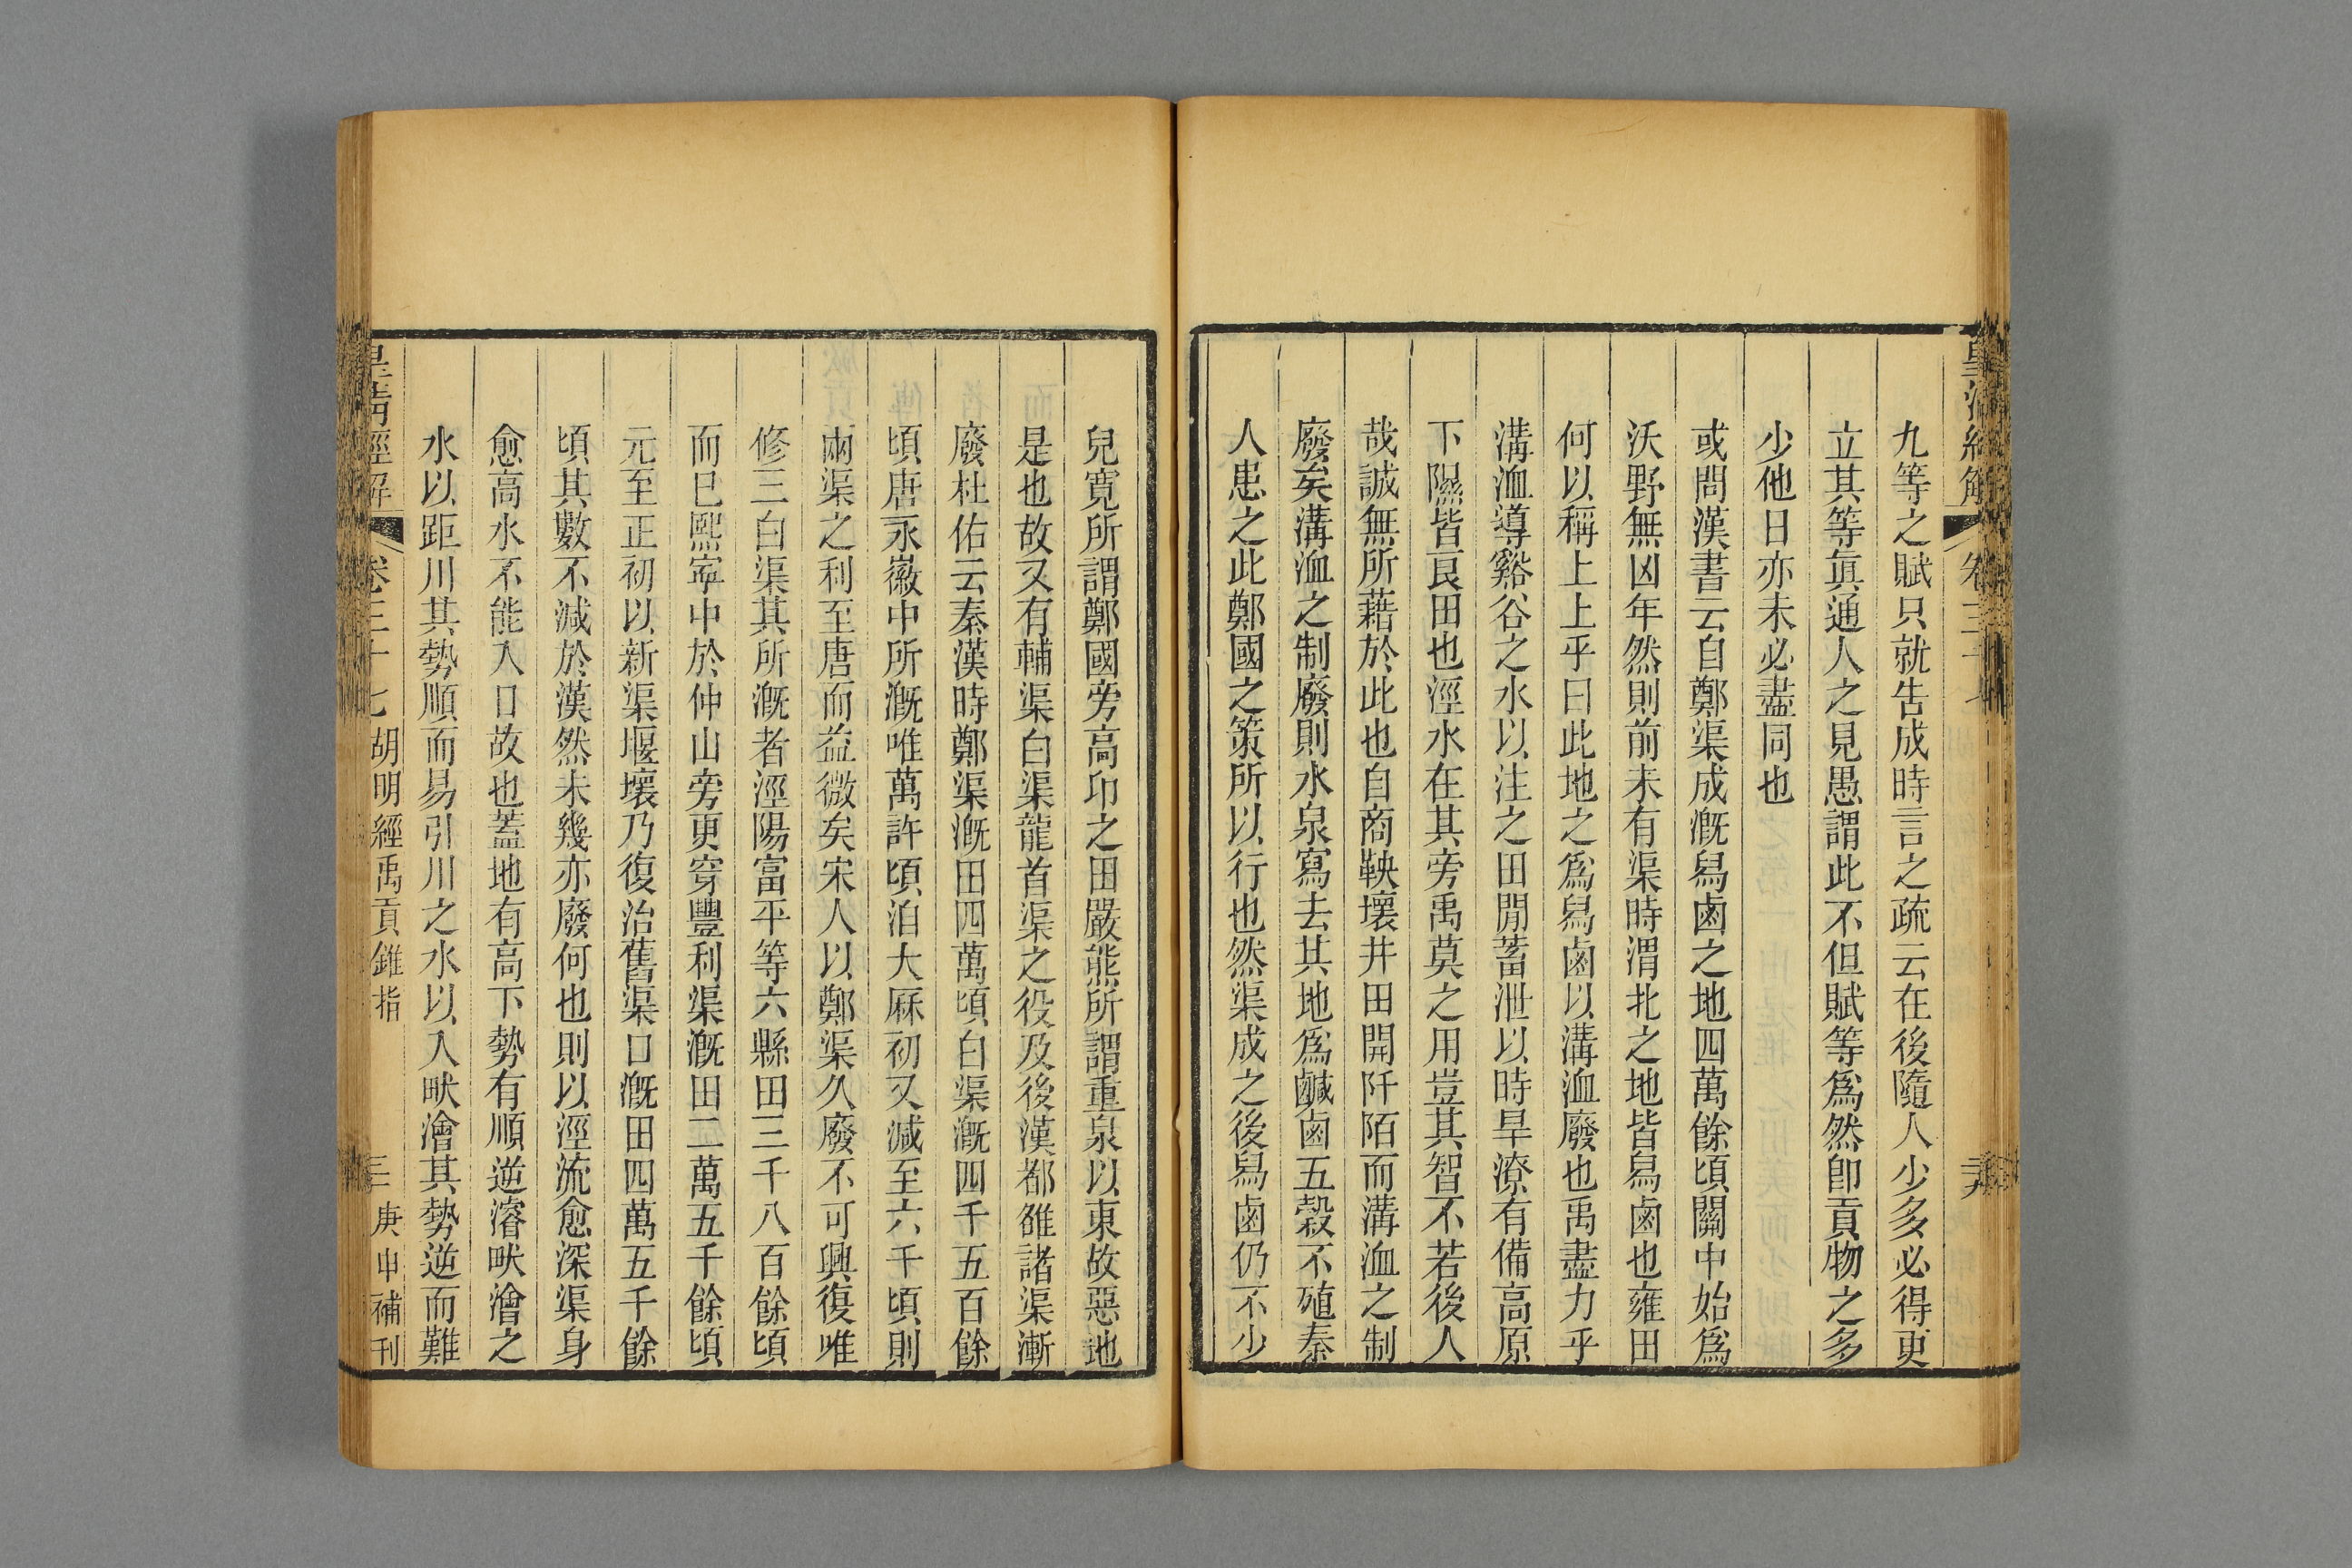 皇清經解
卷三十七
九等之賦只就告成時言之疏云在後隨人少多必得更
立其等眞通人之見愚謂此不但賦等爲然卽貢物之多
少他日亦未必盡同也
或問漢書云自鄭渠成漑舄鹵之地四萬餘頃關中始爲
沃野無凶年然則前未有渠時渭北之地皆舄鹵也雍田
何以稱上上乎曰此地之爲舄鹵以溝洫廢也禹盡力乎
溝洫導谿谷之水以注之田閒蓄泄以時旱潦有備高原
下隰皆良田也涇水在其旁禹莫之用豈其智不若後人
哉誠無所藉於此也自商鞅壞井田開阡陌而溝洫之制
廢矣溝洫之制廢則水泉寫去其地爲鹹鹵五穀不殖秦
人患之此鄭國之策所以行也然渠成之後舄鹵仍不少
兒寬所謂鄭國旁高卬之田嚴熊所謂重泉以東故惡地
是也故又有輔渠白渠龍首渠之役及後漢都雒諸渠漸
廢杜佑云秦漢時鄭渠漑田四萬頃白渠漑四千五百餘
頃唐永徽中所漑唯萬許頃洎大厤初又減至六千頃則
兩渠之利至唐而益微矣宋人以鄭渠久廢不可興復唯
修三白渠其所漑者涇陽富平等六縣田三千八百餘頃
而已熙寧中於仲山旁更穿豐利渠漑田二萬五千餘頃
元至正初以新渠堰壞乃復治舊渠口漑田四萬五千餘
頃其數不減於漢然未幾亦廢何也則以涇流愈深渠身
愈高水不能入口故也蓋地有高下勢有順逆濬畎澮之
水以距川其勢順而易引川之水以入畎澮其勢逆而難
皇清經解 卷三十七 胡明經禹貢錐指 庚申補刊